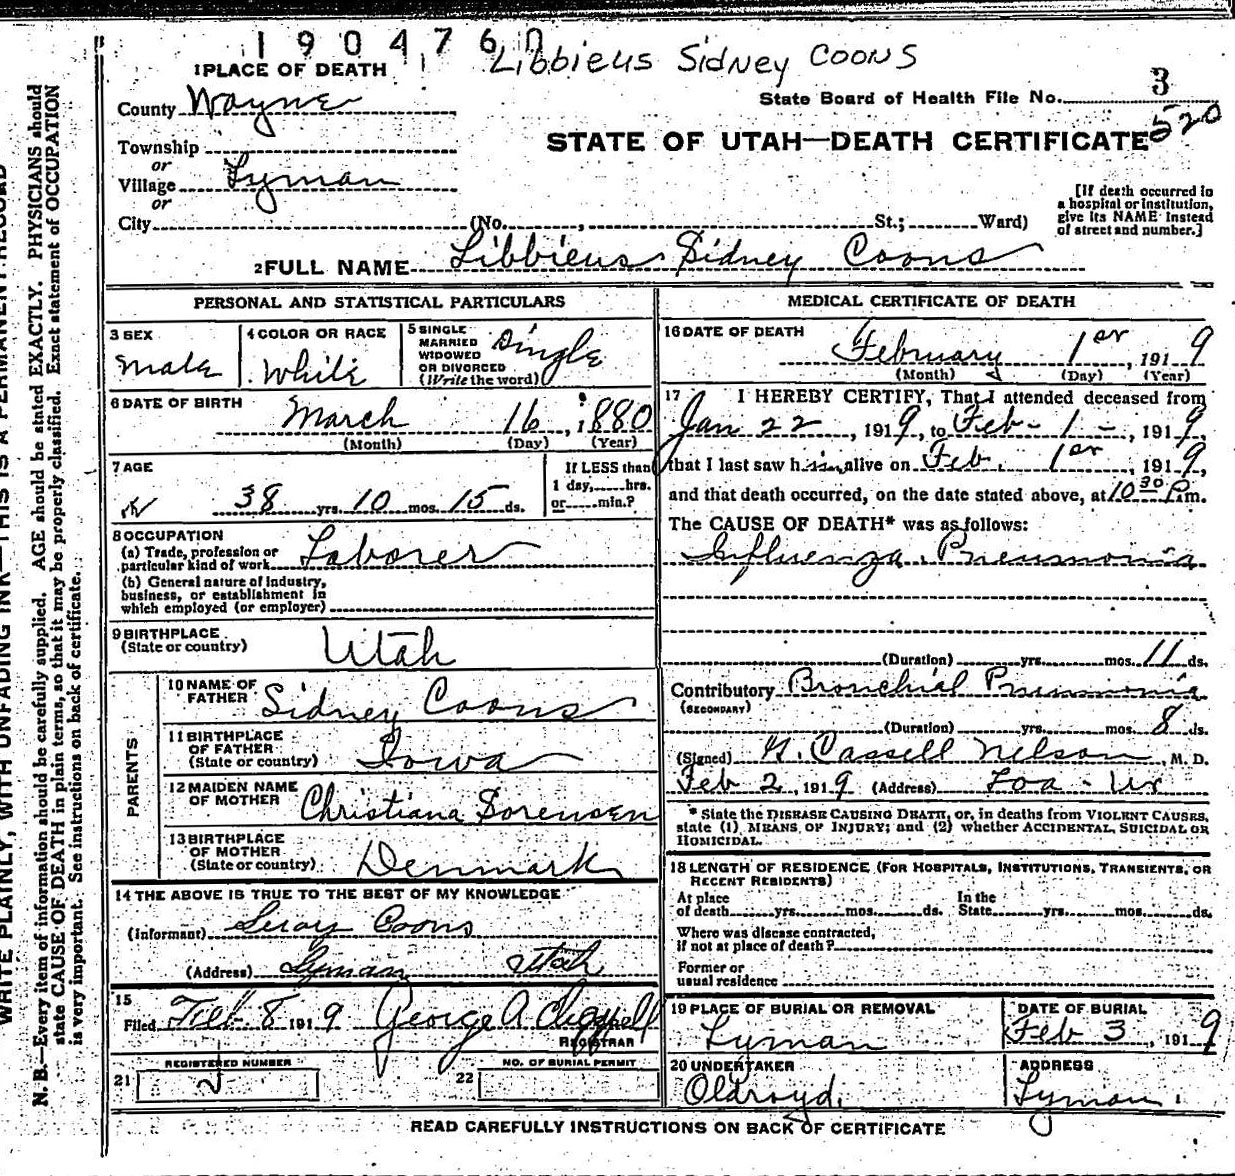 1904760
Libbieus Sidney Coons
1 PLACE OF DEATH
State Board of Health File No. 3
520
County Wayne
STATE OF UTAH—DEATH CERTIFICATE
Township
or
Village Lyman
or
City (No. , St.; Ward)
[If death occurred in
a hospital or institution,
give its NAME instead
of street and number.]
2 FULL NAME Libbieus Sidney Coons
PERSONAL AND STATISTICAL PARTICULARS
3 SEX
Male
4 COLOR OR RACE
White
5 SINGLE
MARRIED
WIDOWED
OR DIVORCED
(Write the word)
Single
6 DATE OF BIRTH March 16, 1880
(Month) (Day) (Year)
7 AGE
38 yrs. 10 mos. 15 ds.
If LESS than
1 day, hrs.
or min.?
8 OCCUPATION
(a) Trade, profession or
particular kind of work Laborer
(b) General nature of industry,
business, or establishment in
which employed (or employer)
9 BIRTHPLACE
(State or country) Utah
PARENTS
10 NAME OF
FATHER Sidney Coons
11 BIRTHPLACE
OF FATHER
(State or country) Iowa
12 MAIDEN NAME
OF MOTHER Christiana Sorensen
13 BIRTHPLACE
OF MOTHER
(State or country) Denmark
14 THE ABOVE IS TRUE TO THE BEST OF MY KNOWLEDGE
(Informant) Leroy Coons
(Address) Lyman Utah
15
Filed Feb 8 1919 George A Chappell
REGISTRAR
REGISTERED NUMBER
21
NO. OF BURIAL PERMIT
22
MEDICAL CERTIFICATE OF DEATH
16 DATE OF DEATH
February 1st, 1919
(Month) (Day) (Year)
17 I HEREBY CERTIFY, That I attended deceased from
Jan 22, 1919, to Feb - 1 -, 1919,
that I last saw him alive on Feb. 1st, 1919,
and that death occurred, on the date stated above, at 10 30 P.m.
The CAUSE OF DEATH* was as follows:
Influenza Pneumonia
(Duration) yrs. mos. 11 ds.
Contributory Bronchial Pneumonia
(SECONDARY)
(Duration) yrs. mos. 8 ds.
(Signed) G. Cassell Nelson, M. D.
Feb 2, 1919 (Address) Loa - Ut
* State the DISEASE CAUSING DEATH, or, in deaths from VIOLENT CAUSES,
state (1) MEANS OF INJURY; and (2) whether ACCIDENTAL, SUICIDAL OR
HOMICIDAL.
18 LENGTH OF RESIDENCE (FOR HOSPITALS, INSTITUTIONS, TRANSIENTS, OR
RECENT RESIDENTS)
At place
of death yrs. mos. ds.
In the
State yrs. mos. ds.
Where was disease contracted,
if not at place of death?
Former or
usual residence
19 PLACE OF BURIAL OR REMOVAL
Lyman
DATE OF BURIAL
Feb 3, 1919
20 UNDERTAKER
Oldroyd.
ADDRESS
Lyman.
READ CAREFULLY INSTRUCTIONS ON BACK OF CERTIFICATE
WRITE PLAINLY, WITH UNFADING INK—THIS IS A PERMANENT RECORD
N. B.—Every item of information should be carefully supplied. AGE should be stated EXACTLY. PHYSICIANS should
state CAUSE OF DEATH in plain terms, so that it may be properly classified. Exact statement of OCCUPATION
is very important. See instructions on back of certificate.